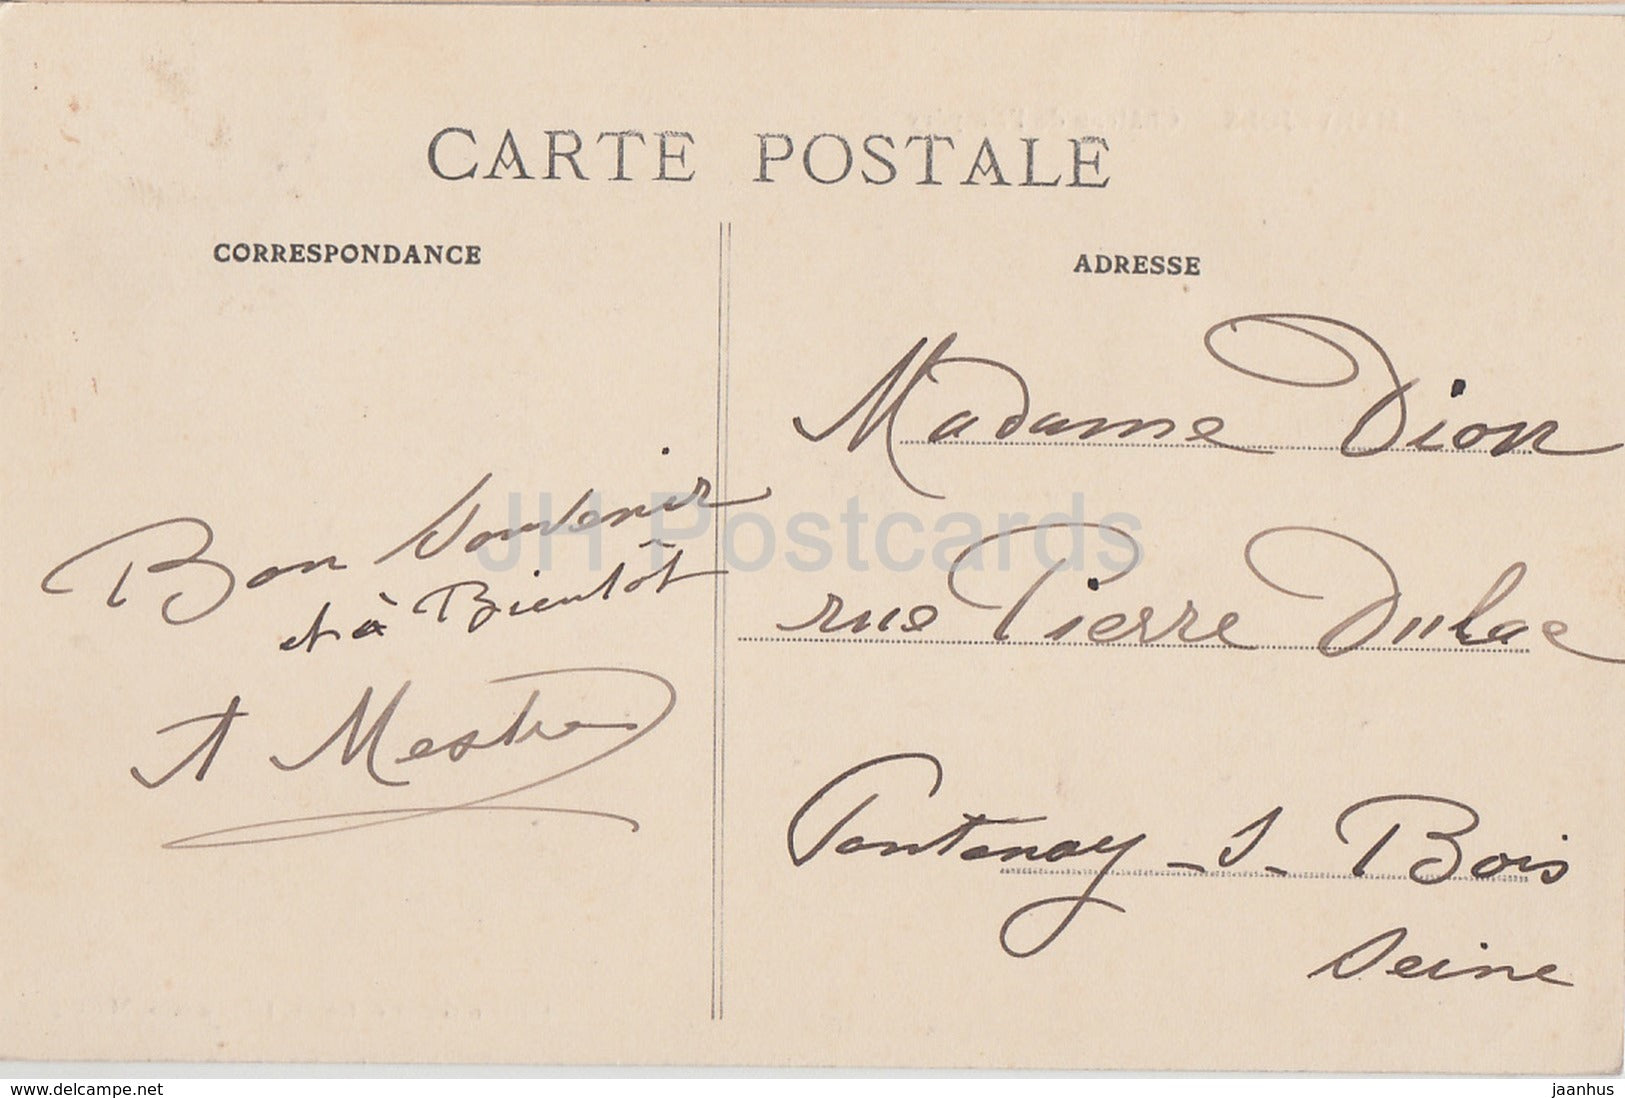 CARTE POSTALE
CORRESPONDANCE
ADRESSE
Bon Souvenir
et à Bientôt
A Mestre
Madame Dion
rue Pierre Dulac
Fontenay - s - Bois
Seine
JH Postcards
www.delcampe.net
jaanhus